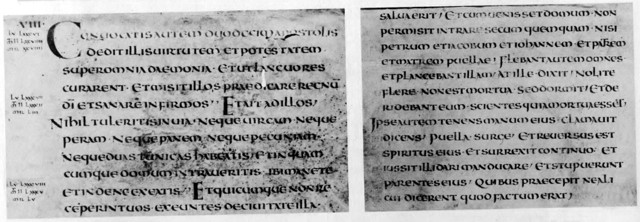 VIII·
CONUOCATIS AUTEM DUODECIM APOSTOLIS
DEDIT ILLIS UIRTUTEM· ET POTESTATEM
SUPER OMNIA DAEMONIA· ET UT LANGUORES
CURARENT· ET MISIT ILLOS· PRAEDICARE REGNŪ
DĪ ET SANARE INFIRMOS· ET AIT AD ILLOS/
NIHIL TULERITIS IN UIA· NEQUE UIRGAM· NEQUE
PERAM· NEQUE PANEM· NEQUE PECUNIAM·
NEQUE DUAS TUNICAS HABEATIS· ET IN QUAM
CUMQUE DOMUM INTRAUERITIS· IBI MANETE
ET INDE NE EXEATIS/ ET QUICUMQUE NON RE
CEPERINT UOS· EXEUNTES DE CIUITATE ILLA·
SALUA ERIT/ ET CUM UENISSET DOMUM· NON
PERMISIT INTRARE SECUM QUEMQUAM· NISI
PETRUM ET IACOBUM ET IOHANNEM· ET PATREM
ET MATREM PUELLAE/ FLEBANT AUTEM OMNES·
ET PLANGEBANT ILLAM/ AT ILLE DIXIT/ NOLITE
FLERE· NON EST MORTUA· SED DORMIT/ ET DE
RIDEBANT EUM· SCIENTES QUIA MORTUA ESSET/
IPSE AUTEM TENENS MANUM EIUS· CLAMAUIT
DICENS/ PUELLA SURGE/ ET REUERSUS EST
SPIRITUS EIUS· ET SURREXIT CONTINUO· ET
IUSSIT ILLI DARI MANDUCARE/ ET STUPUERUNT
PARENTES EIUS/ QUIBUS PRAECEPIT NE ALI
CUI DICERENT QUOD FACTUM ERAT/